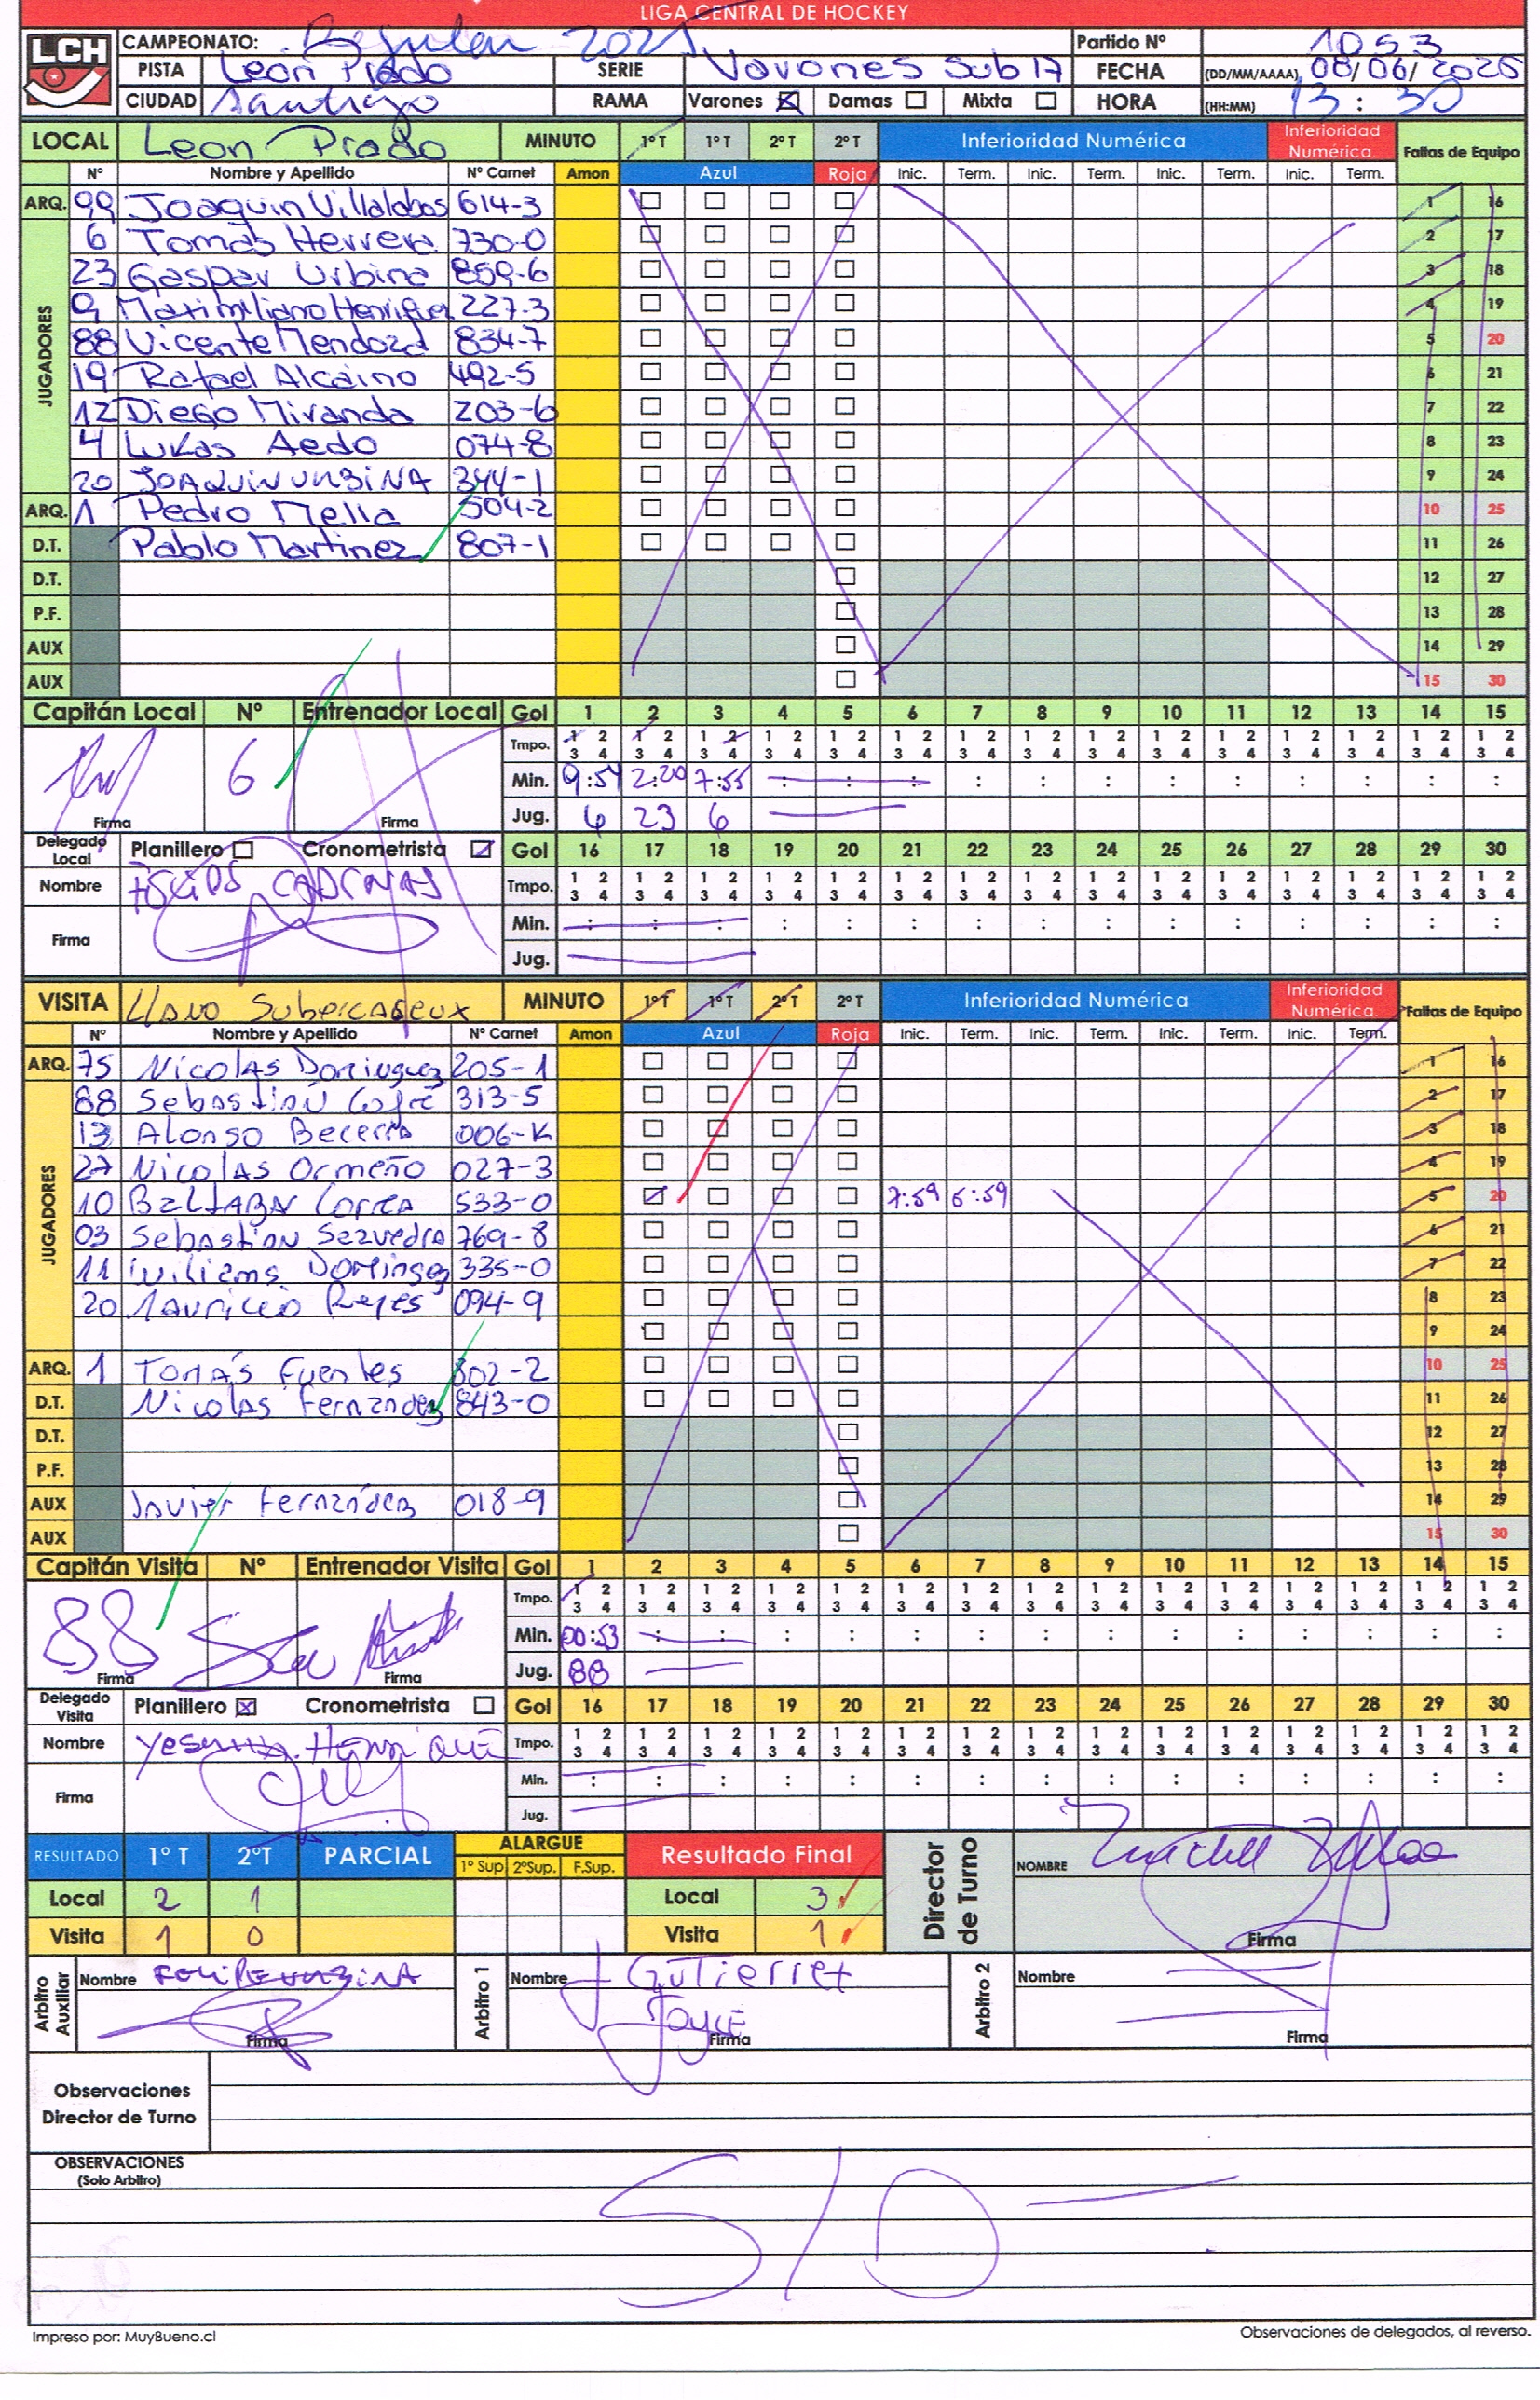 LIGA CENTRAL DE HOCKEY
LCH
CAMPEONATO: Regular 2025 Partido Nº 1053
PISTA Leon Prado SERIE Varones Sub 17 FECHA (DD/MM/AAAA) 08/06/2025
CIUDAD Santiago RAMA Varones Damas Mixta HORA (HH:MM) 13:30
LOCAL Leon Prado MINUTO 1º T 1º T 2º T 2º T Inferioridad Numérica Inferioridad Numérica Faltas de Equipo
Nº Nombre y Apellido Nº Carnet Amon Azul Roja Inic. Term. Inic. Term. Inic. Term. Inic. Term.
ARQ. 99 Joaquin Villalobos 614-3 1 16
JUGADORES
6 Tomas Herrera 730-0 2 17
23 Gaspar Urbina 859-6 3 18
9 Maximiliano Henriquez 227-3 4 19
88 Vicente Mendoza 834-7 5 20
19 Rafael Alcaino 492-5 6 21
12 Diego Miranda 203-6 7 22
4 Lukas Aedo 074-8 8 23
20 JOAQUIN URBINA 344-1 9 24
ARQ. 1 Pedro Mella 504-2 10 25
D.T. Pablo Martinez 807-1 11 26
D.T. 12 27
P.F. 13 28
AUX 14 29
AUX 15 30
Capitán Local Nº Entrenador Local Gol 1 2 3 4 5 6 7 8 9 10 11 12 13 14 15
Tmpo. 1 2 3 4 1 2 3 4 1 2 3 4 1 2 3 4 1 2 3 4 1 2 3 4 1 2 3 4 1 2 3 4 1 2 3 4 1 2 3 4 1 2 3 4 1 2 3 4 1 2 3 4 1 2 3 4 1 2 3 4
6 Min. 9:54 2:20 7:55 : : : : : : : : : : : :
Firma Firma Jug. 6 23 6
Delegado Local Planillero Cronometrista Gol 16 17 18 19 20 21 22 23 24 25 26 27 28 29 30
Nombre CADENAS Tmpo. 1 2 3 4 1 2 3 4 1 2 3 4 1 2 3 4 1 2 3 4 1 2 3 4 1 2 3 4 1 2 3 4 1 2 3 4 1 2 3 4 1 2 3 4 1 2 3 4 1 2 3 4 1 2 3 4 1 2 3 4
Firma Min. : : : : : : : : : : : : : : :
Jug.
VISITA Llano Subercaseux MINUTO 1º T 1º T 2º T 2º T Inferioridad Numérica Inferioridad Numérica Faltas de Equipo
Nº Nombre y Apellido Nº Carnet Amon Azul Roja Inic. Term. Inic. Term. Inic. Term. Inic. Term.
ARQ. 75 Nicolas Dominguez 205-1 1 16
JUGADORES
88 Sebastian Cofre 313-5 2 17
13 Alonso Becerra 006-K 3 18
27 Nicolas Ormeño 027-3 4 19
10 Correa 533-0 7:59 5:59 5 20
03 Sebastian 769-8 6 21
11 Williams Dominguez 335-0 7 22
20 Mauricio Reyes 094-9 8 23
9 24
ARQ. 1 Tomás Fuentes 802-2 10 25
D.T. Nicolas Fernandez 843-0 11 26
D.T. 12 27
P.F. 13 28
AUX Javier Fernández 018-9 14 29
AUX 15 30
Capitán Visita Nº Entrenador Visita Gol 1 2 3 4 5 6 7 8 9 10 11 12 13 14 15
Tmpo. 1 2 3 4 1 2 3 4 1 2 3 4 1 2 3 4 1 2 3 4 1 2 3 4 1 2 3 4 1 2 3 4 1 2 3 4 1 2 3 4 1 2 3 4 1 2 3 4 1 2 3 4 1 2 3 4 1 2 3 4
88 Min. 00:53 : : : : : : : : : : : : : :
Firma Firma Jug. 88
Delegado Visita Planillero Cronometrista Gol 16 17 18 19 20 21 22 23 24 25 26 27 28 29 30
Nombre Tmpo. 1 2 3 4 1 2 3 4 1 2 3 4 1 2 3 4 1 2 3 4 1 2 3 4 1 2 3 4 1 2 3 4 1 2 3 4 1 2 3 4 1 2 3 4 1 2 3 4 1 2 3 4 1 2 3 4 1 2 3 4
Firma Min. : : : : : : : : : : : : : : :
Jug.
RESULTADO 1º T 2ºT PARCIAL ALARGUE 1º Sup. 2ºSup. F.Sup. Resultado Final Director de Turno NOMBRE
Local 2 1 Local 3
Visita 1 0 Visita 1 Firma
Arbitro Auxiliar Nombre FELIPE URBINA Arbitro 1 Nombre J Gutierrez Arbitro 2 Nombre
Firma Joyce Firma Firma
Observaciones Director de Turno
OBSERVACIONES (Solo Arbitro)
S/O
Impreso por: MuyBueno.cl Observaciones de delegados, al reverso.